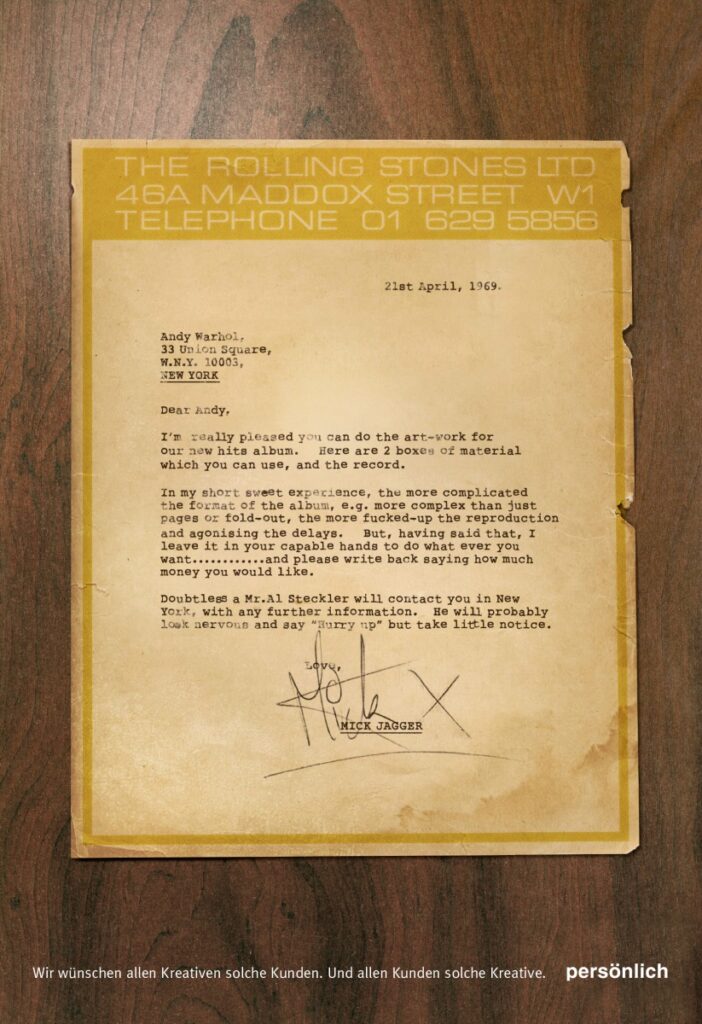 THE ROLLING STONES LTD
46A MADDOX STREET W1
TELEPHONE 01 629 5856
21st April, 1969.
Andy Warhol,
33 Union Square,
W.N.Y. 10003,
NEW YORK
Dear Andy,
I'm really pleased you can do the art-work for
our new hits album. Here are 2 boxes of material
which you can use, and the record.
In my short sweet experience, the more complicated
the format of the album, e.g. more complex than just
pages or fold-out, the more fucked-up the reproduction
and agonising the delays. But, having said that, I
leave it in your capable hands to do what ever you
want............and please write back saying how much
money you would like.
Doubtless a Mr.Al Steckler will contact you in New
York, with any further information. He will probably
look nervous and say "Hurry up" but take little notice.
Love,
Mick X
MICK JAGGER
Wir wünschen allen Kreativen solche Kunden. Und allen Kunden solche Kreative. persönlich